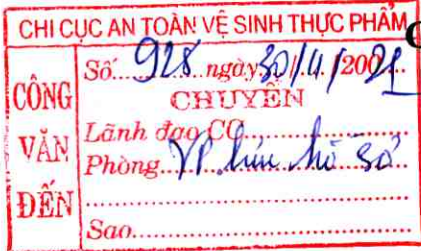 CHI CỤC AN TOÀN VỆ SINH THỰC PHẨM
CÔNG VĂN ĐẾN
Số...928...ngày.30./.11./200.21..
CHUYỂN
Lãnh đạo CC...................
Phòng...VP lưu hồ sơ
.......................................
Sao...................................